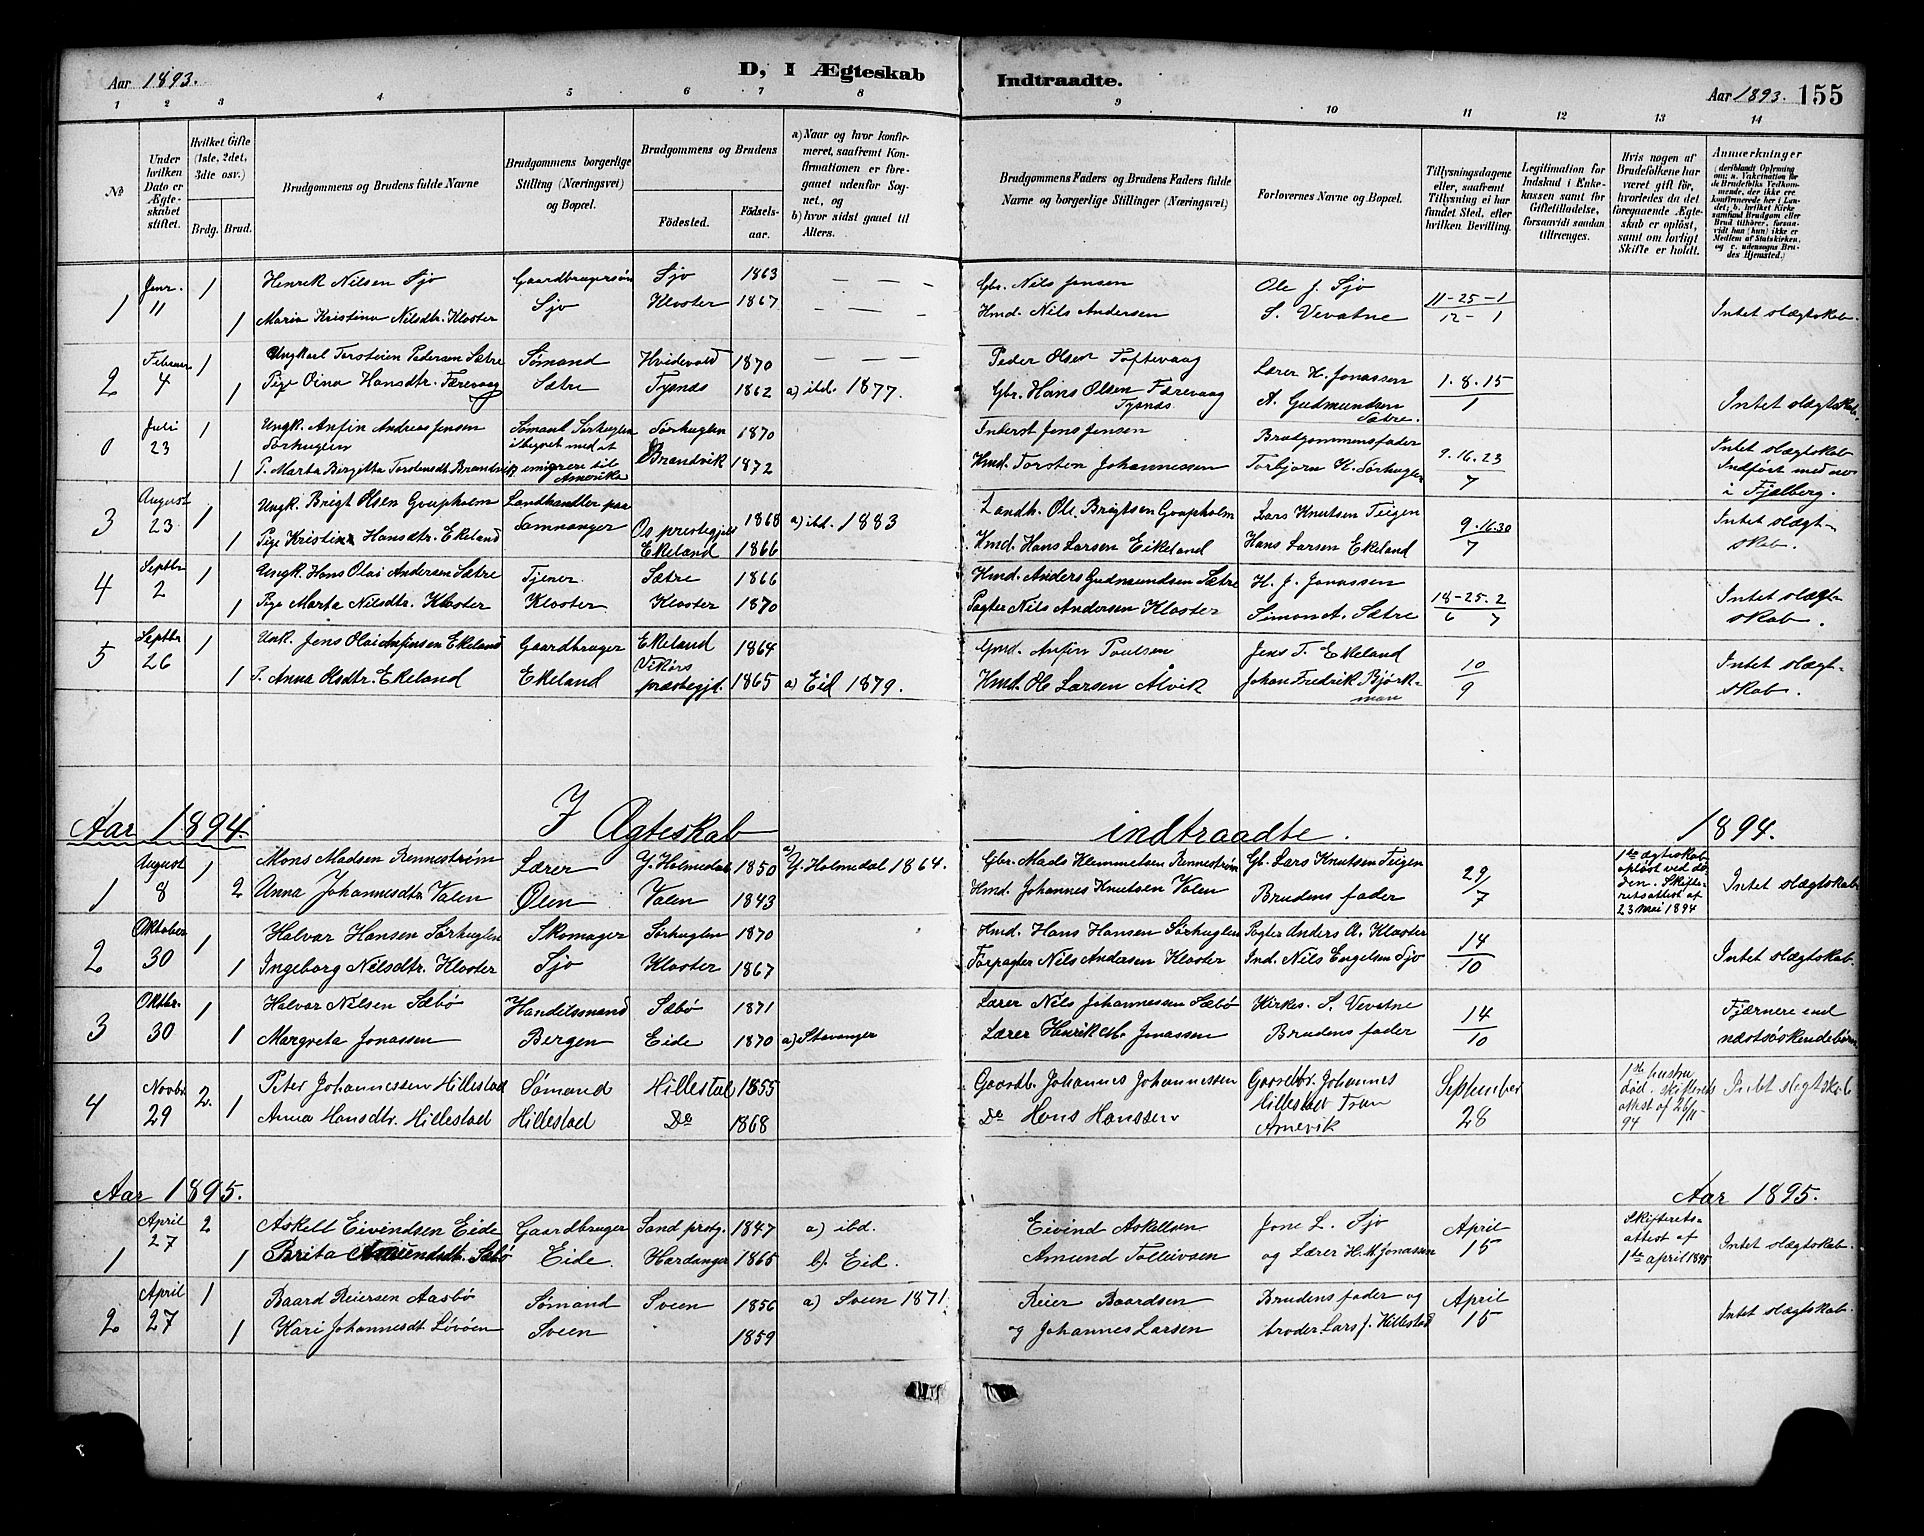 Aar 1893. D, I Ægteskab Indtraadte. Aar 1893. 155
1 2 3 4 5 6 7 8 9 10 11 12 13 14
No
Under hvilken Dato er Ægteskabet stiftet.
Hvilket Gifte (1ste, 2det, 3die osv.)
Brdg. Brud.
Brudgommens og Brudens fulde Navne
Brudgommens borgerlige Stilling (Næringsvei) og Bopæl.
Brudgommens og Brudens
Fødested. Fødselsaar.
a) Naar og hvor konfirmeret, saafremt Konfirmationen er foregaaet udenfor Sognet, og
b) hvor sidst gaaet til Alters.
Brudgommens Faders og Brudens Faders fulde Navne og borgerlige Stillinger (Næringsvei)
Forlovernes Navne og Bopæl.
Tillysningsdagene eller, saafremt Tillysning ei har fundet Sted, efter hvilken Bevilling.
Legitimation for Indskud i Enkekassen samt for Giftetilladelse, forsaavidt saadan tiltrænges.
Hvis nogen af Brudefolkene har været gift før, hvorledes da det foregaaende Ægteskab er opløst, samt om lovligt Skifte er holdt.
Anmærkninger
1 Janr. 11 1 Henrik Nilsen Sjo Gaardbrugersøn Sjo 1863 — — — Gbr. Nils Jensen Ole J. Sjo 11-25-1
1 Maria Kristina Nilsdtr. Kloster Sjo Kloster 1867 — — — Hmd. Nils Andersen S. Vevatne 12 - 1 Intet slægtskab.
2 Februar 4 1 Ungkarl Torsteien Pedersen Sætre Sømand Hvidevold 1870 — — — Peder Olsen Toftevaag Lærer H. Jonassen 1. 8. 15
1 Pige Oina Hansdtr. Færevaag Sætre Tysnæs 1862 a) ibd. 1877. Gbr. Hans Olsen Færevaag Tysnæs A. Gudmundsen Sætre. 1 Intet slægtskab.
0 Juli 23 1 Ungk. Anfin Andreas Jensen Sørhuglen Sømand Sørhuglen ibegret med at emigrere til Amerika Sørhuglen 1870 Inderst Jens Jensen Brudgommens fader 9. 16. 23 Intet slægtskab
1 P. Marta Birgitta Torstensdt Brandvik Brandvik 1872 Hmd. Torsten Johannessen Torbjørn K. Sørhuglen 7 Indført med no i Fjelberg.
3 August 23 1 Ungk. Brigt Olsen Gaupholm Landhandler paa Samnanger Os prestegjeld 1868 a) ibd. 1883 Landh. Ole Brigtsen Gaupholm Lars Knutsen Teigen 9. 16. 30 Intet slægt-
1 Pige Kristina Hansdtr. Ekeland Ekeland 1866 Hmd. Hans Larsen Eikeland Hans Larsen Ekeland 7 skab.
4 Septbr 2 1 Ungk. Hans Olai Andersen Sætre Tjener Sætre 1866 Hmd. Anders Gudmundsen Sætre H. J. Jonassen 18-25. 2 Intet slægt-
1 Pige Marta Nilsdtr. Kloster Kloster Kloster 1870 Pagter Nils Andersen Kloster Simon A. Sætre 6 7 skab.
5 Septbr 26 1 Unk. Jens Olai Anfinsen Ekeland Gaardbruger Ekeland 1864 Gmd. Anfin Poulsen Jens T. Ekeland 10 Intet slægt-
1 P. Anna Olsdtr. Ekeland Ekeland Vikørs præstegjd. 1865 a) Eid 1879. Hmd. Ole Larsen Alvik Johan Fredrik Bjørkman 9 skab.
Aar 1894. I Ægteskab indtraadte. 1894.
1 August 8 1 Mons Madsen Rennestrøm Lærer Y. Holmedal 1850 a) Y. Holmedal 1864. Gbr. Mads Klemmetsen Rennestrøm Gb. Lars Knutsen Teigen 29 1ste ægteskab opløst ved døden. Skifteretsattest af 23 Mai 1894
2 Anna Johannesdtr Valen Ølen Valen 1843 Hmd. Johannes Knutsen Valen Brudens fader 7 Intet slægtskab
2 Oktober 30 1 Halvar Hansen Sørhuglen Skomager Sørhuglen 1870 Hmd. Hans Hansen Sørhuglen Pagter Anders A. Kloster 14
1 Ingeborg Nilsdtr. Kloster Sjo Kloster 1867 Forpagter Nils Andersen Kloster Ind. Nils Engelsen Sjo 10 Intet slægtskab.
3 Oktbr. 30 1 Halvar Nilsen Sæbø Handelsmand Sæbø 1871 Lærer Nils Johannessen Sæbø Kirkes. S. Vevatne 14 Fjærnere end
1 Margreta Jonassen Bergen Eide 1870 a) Stavanger Lærer Henrik M. Jonassen Brudens fader 10 næstsøskendebørn
4 Novbr 29 2. Peter Johannessen Hillestad Sømand Hillestad 1855 Gaardb. Johannes Johannessen Gaardbr. Johannes Hillestad September 1ste hustru død, skifterets attest af 26/11-94 Intet slægtskab
1 Anna Hansdtr. Hillestad Hillestad Do 1868 Do Hans Hanssen Arnevik 28
Aar 1895. Aar 1895.
1 April 27 2 Askell Eivindsen Eide Gaardbruger Sand prstg. 1847 a) ibd. Eivind Askellsen Jone L. Sjo April Skifteretsattest af 1ste april 1895
1 Brita Amundsdt. Sæbø Eide. Hardanger 1865 b) Eid. Amund Tolleivsen og Lærer H. M Jonassen 15 Intet slægtskab.
2 April 27 1 Baard Reiersen Aasbø Sømand Sveen 1856 a) Sveen 1871. Reier Baardsen Brudens fader og April Intet slægtskab.
1 Kari Johannesdt Løvøen Sveen 1859 og Johannes Larsen broder Lars J. Hillestad 15